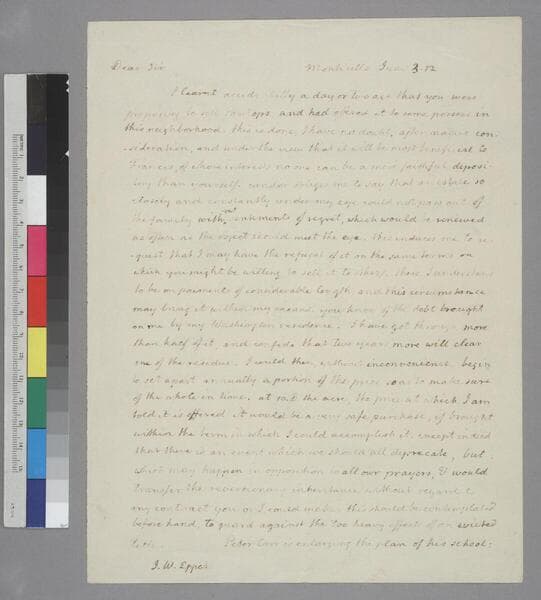 Dear Sir Monticello Jan. 3. 12
I learnt accidentally a day or two ago that you were
proposing to sell Pantops, and had offered it to some persons in
this neighborhood. this is done, I have no doubt, after mature con-
-sideration, and under the view that it will be most beneficial to
Francis, of whose interests no one can be a more faithful deposi-
tory than yourself. candor obliges me to say that an estate so
closely and constantly under my eye could not pass out of
the family without sentiments of regret, which would be renewed
as often as the object should meet the eye. this induces me to re-
quest that I may have the refusal of it on the same terms on
which you might be willing to sell it to others. these I understand
to be on paiments of considerable length, and this circumstance
may bring it within my means. you know of the debt brought
on me by my Washington residence. I have got through more
than half of it and confide that two years more will clear
me of the residue. I could then, without inconvenience, begin
to set apart annually a portion of the price so as to make sure
of the whole in time. at the acre, the price at which I am
told it is offered it would be a very safe purchase, if brought
within the term in which I could accomplish it. except indeed
that there is an event which we should all deprecate, but
which may happen in opposition to all our prayers, & would
transfer the reversionary inheritance without regard to
any contract you or I could make. this should be contemplated
before hand, to guard against the too heavy effect of an evicted
title. Peter Carr is enlarging the plan of his school:
J. W. Eppes